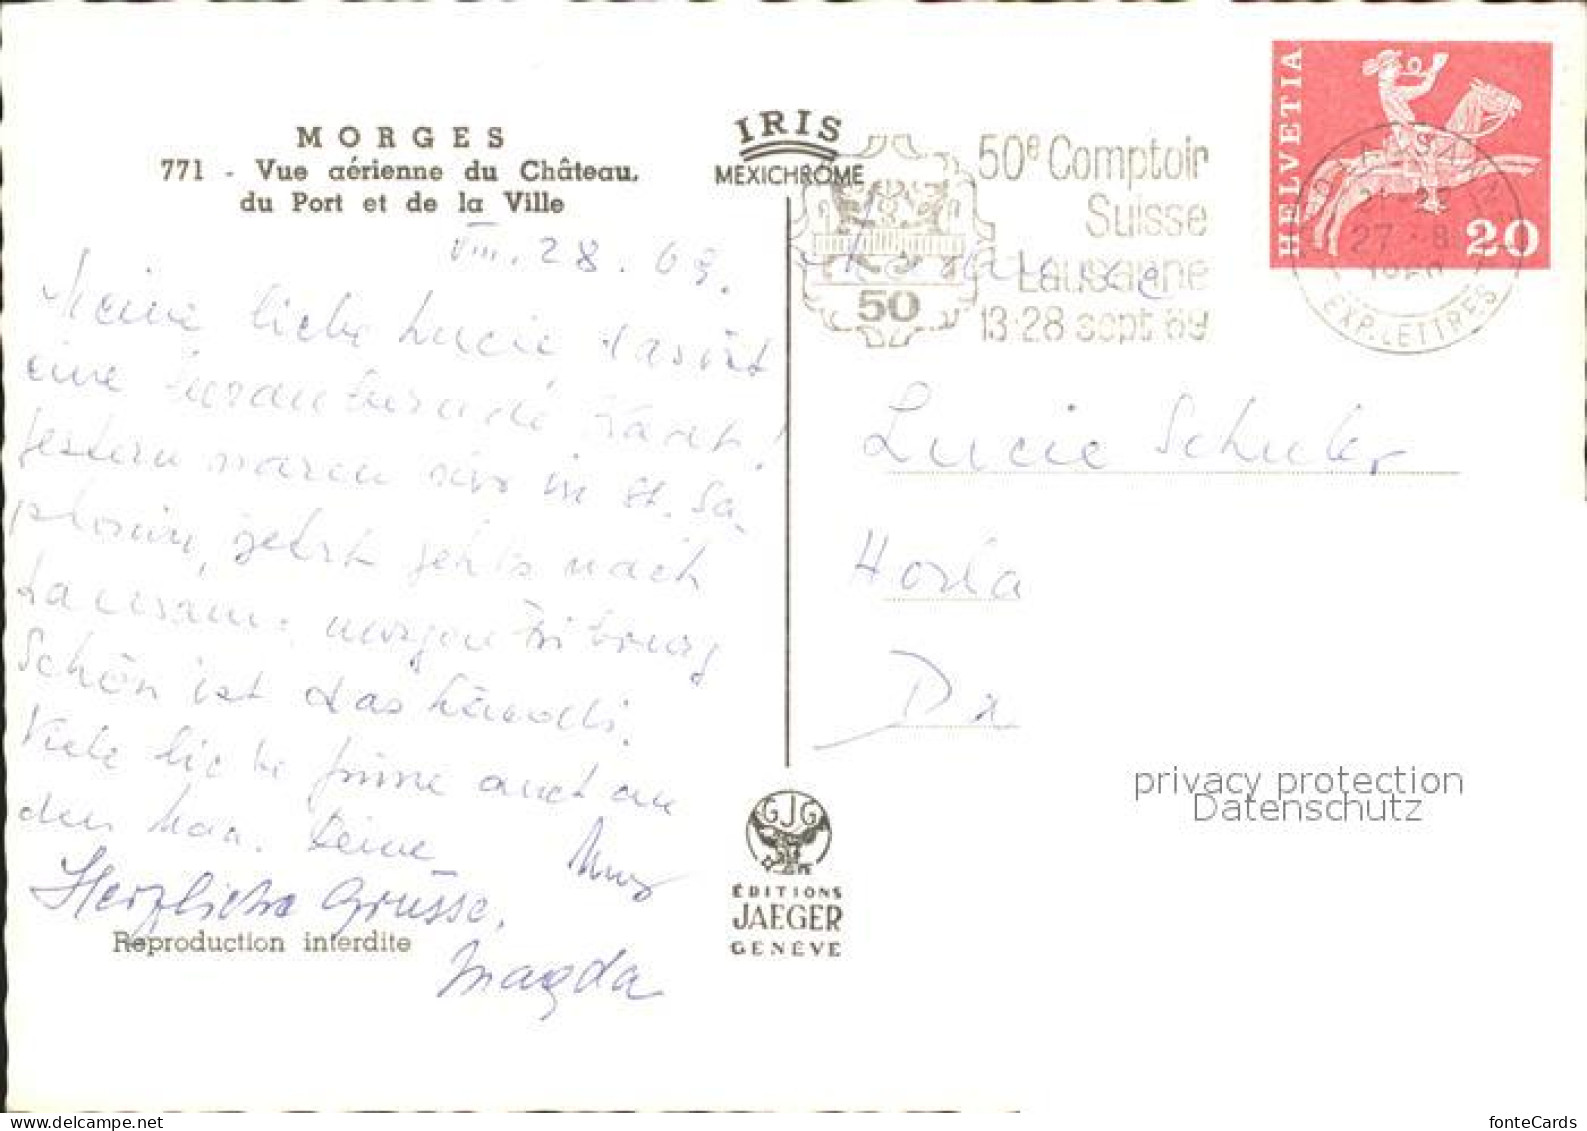 MORGES
771 - Vue aérienne du Château,
du Port et de la Ville
VIII. 28. 69.
Meine liebe Lucie das ist
eine Karte!
gestern waren wir in St. Sa-
phorin, jetzt geht's nach
Lausanne, morgen Fribourg
Schön ist das
Viele liebe Grüsse auch an
den Max. Deine
Herzliche Grüsse,
Magda
Reproduction interdite
IRIS
MEXICHROME
50
50e Comptoir
Suisse
Lausanne
13-28 sept 69
HELVETIA
20
LAUSANNE
27. 8
EXP. LETTRES
Lucie Schuler
GJG
ÉDITIONS
JAEGER
GENÈVE
privacy protection
Datenschutz
fonteCards